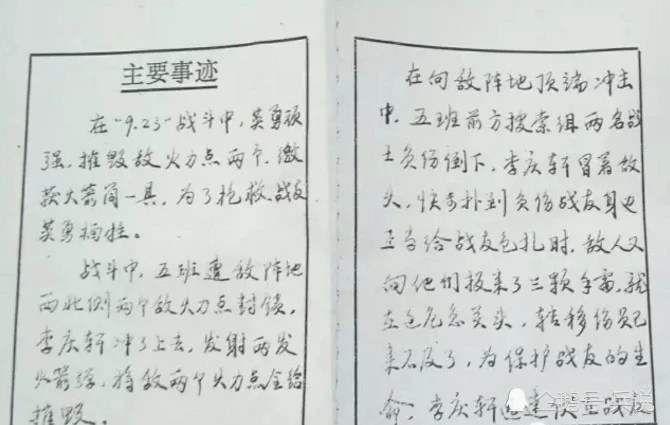 主要事迹
在"9.23"战斗中,英勇顽
强,摧毁敌火力点两个,缴
获火箭筒一具,为了抢救战友
英勇牺牲。
战斗中,五班遭敌阵地
西北侧两个敌火力点封锁,
李庆轩冲了上去,发射两发
火箭弹,将敌两个火力点全给
摧毁。
在向敌阵地顶端冲击
中,五班前方搜索组两名战
士负伤倒下,李庆轩冒着敌
火,快步扑到负伤战友身边
正当给战友包扎时,敌人又
向他们投来了三颗手雷,就
在这危急关头,转移伤员已
来不及了,为保护战友的生
命,李庆轩迅速伏在战友